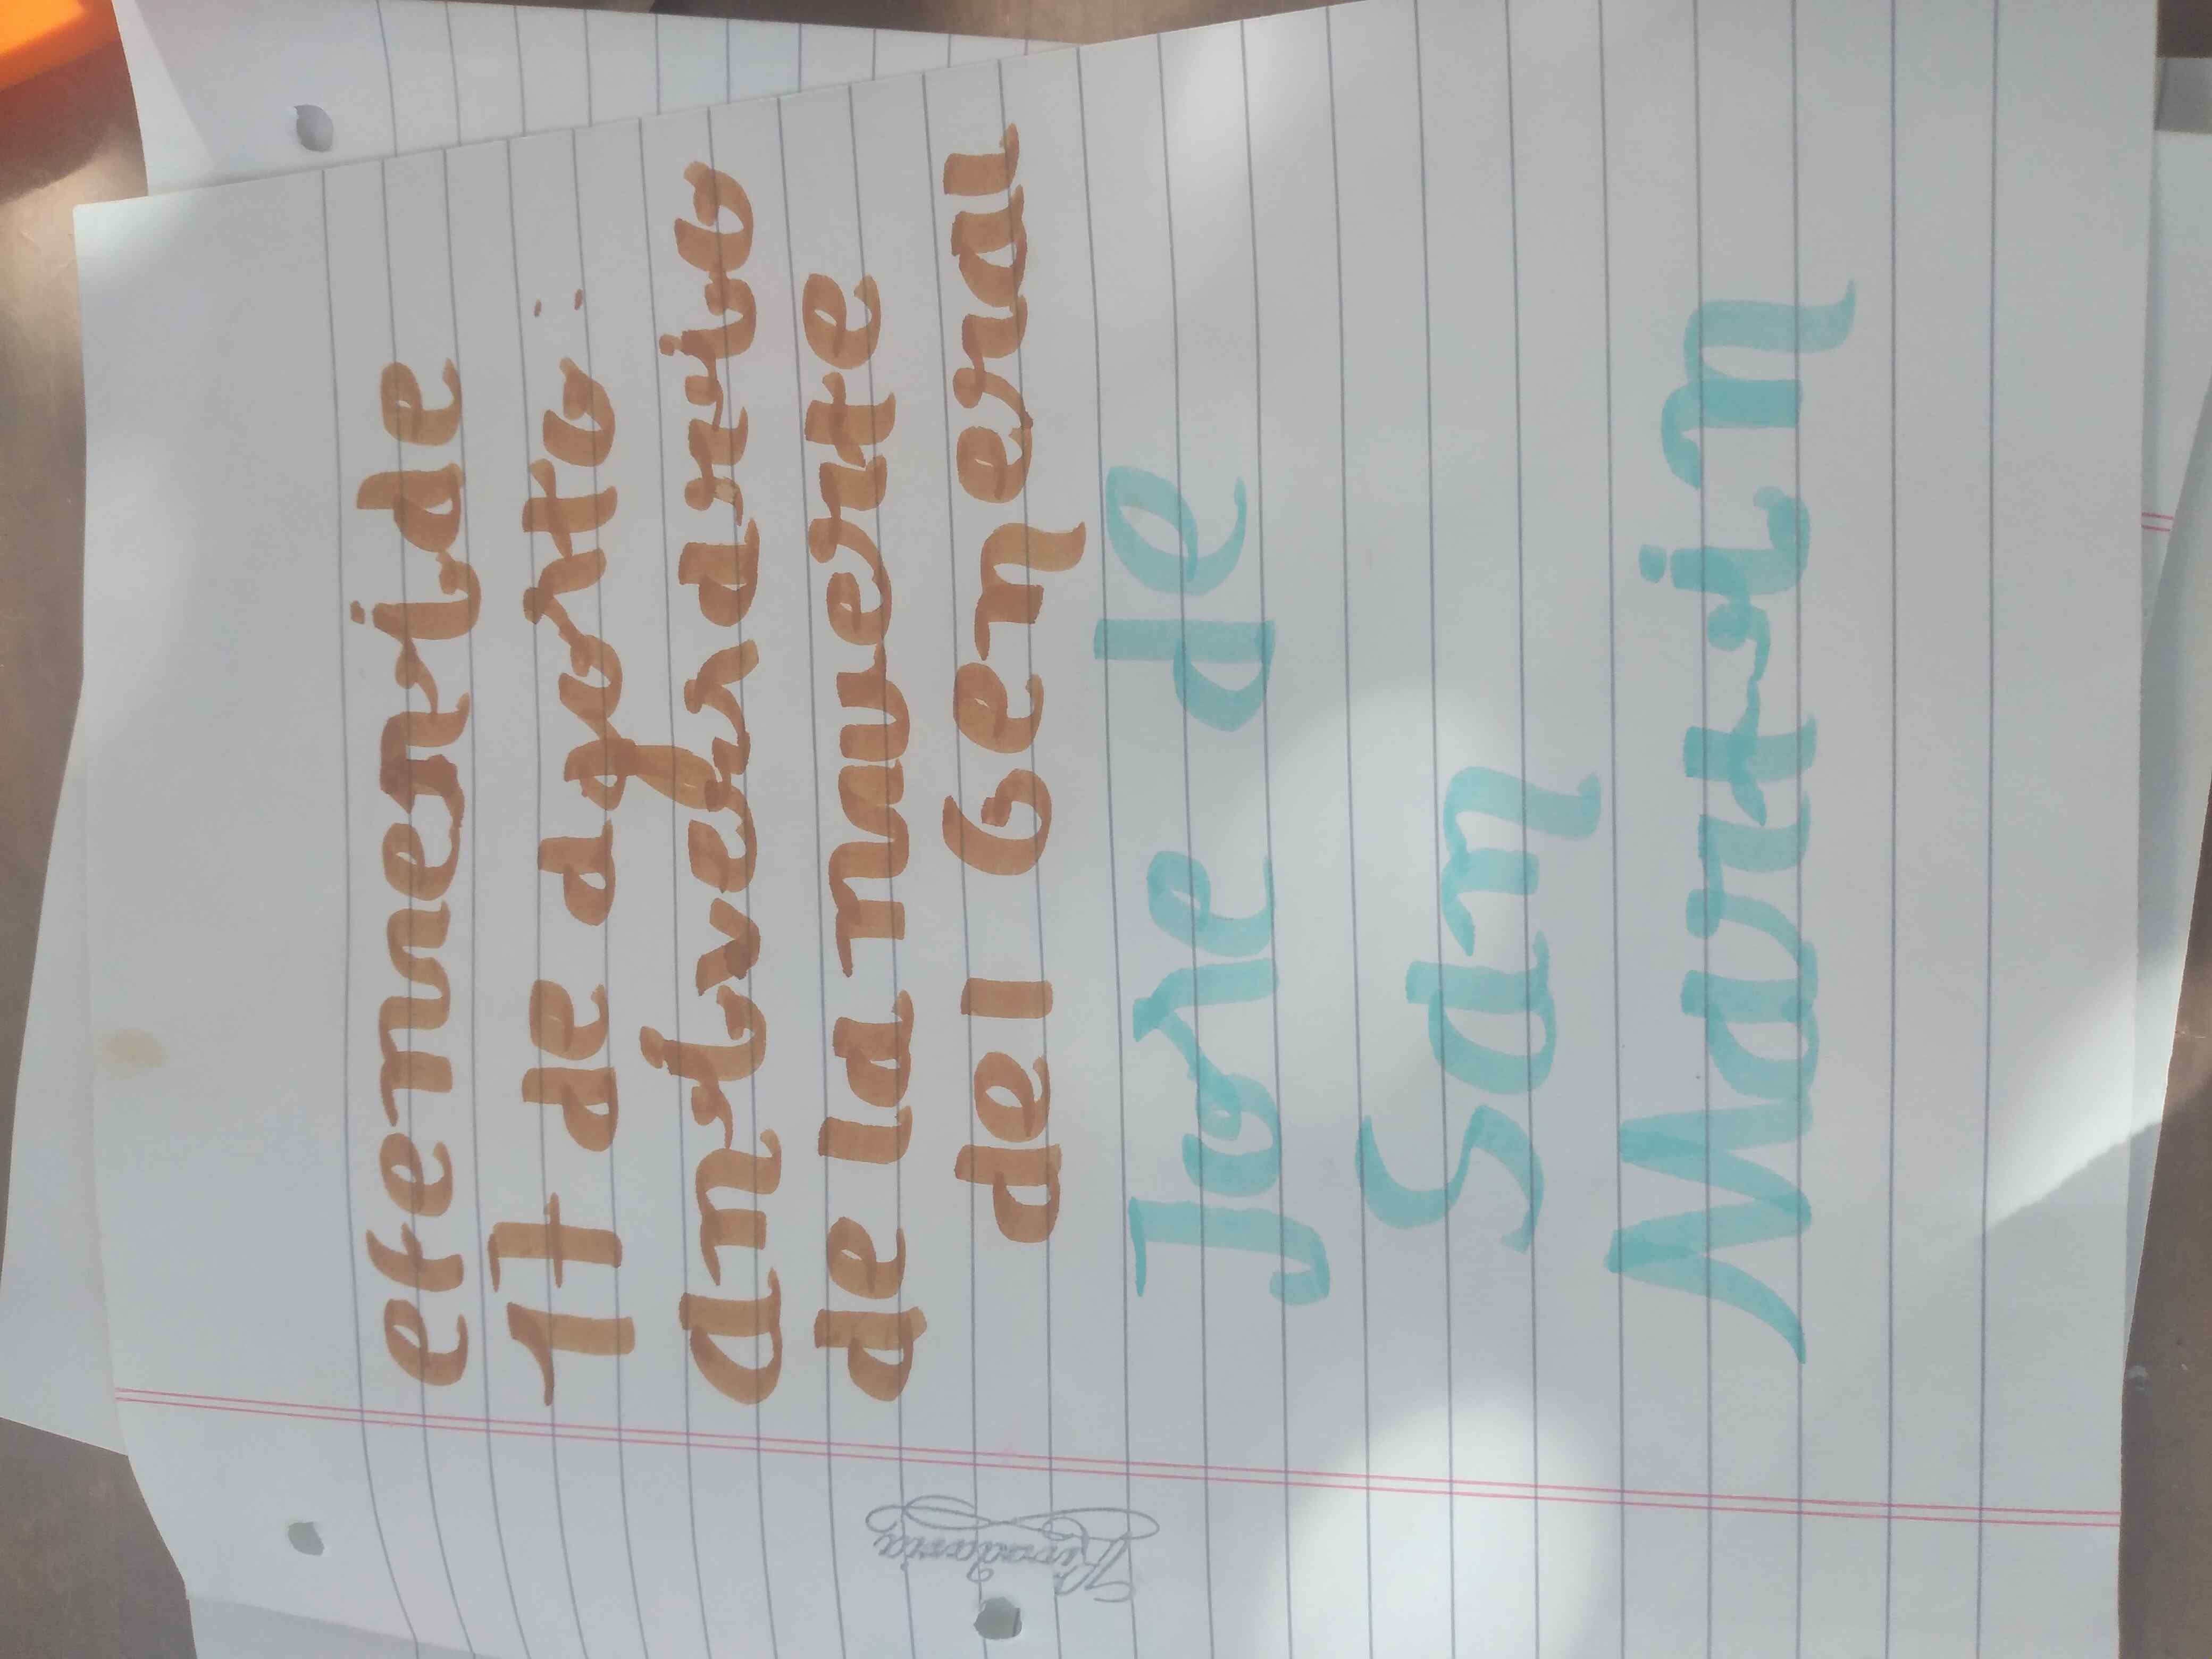 efemeride
17 de agosto:
aniversario
de la muerte
del General
Jose de
San
Martin
Rivadavia